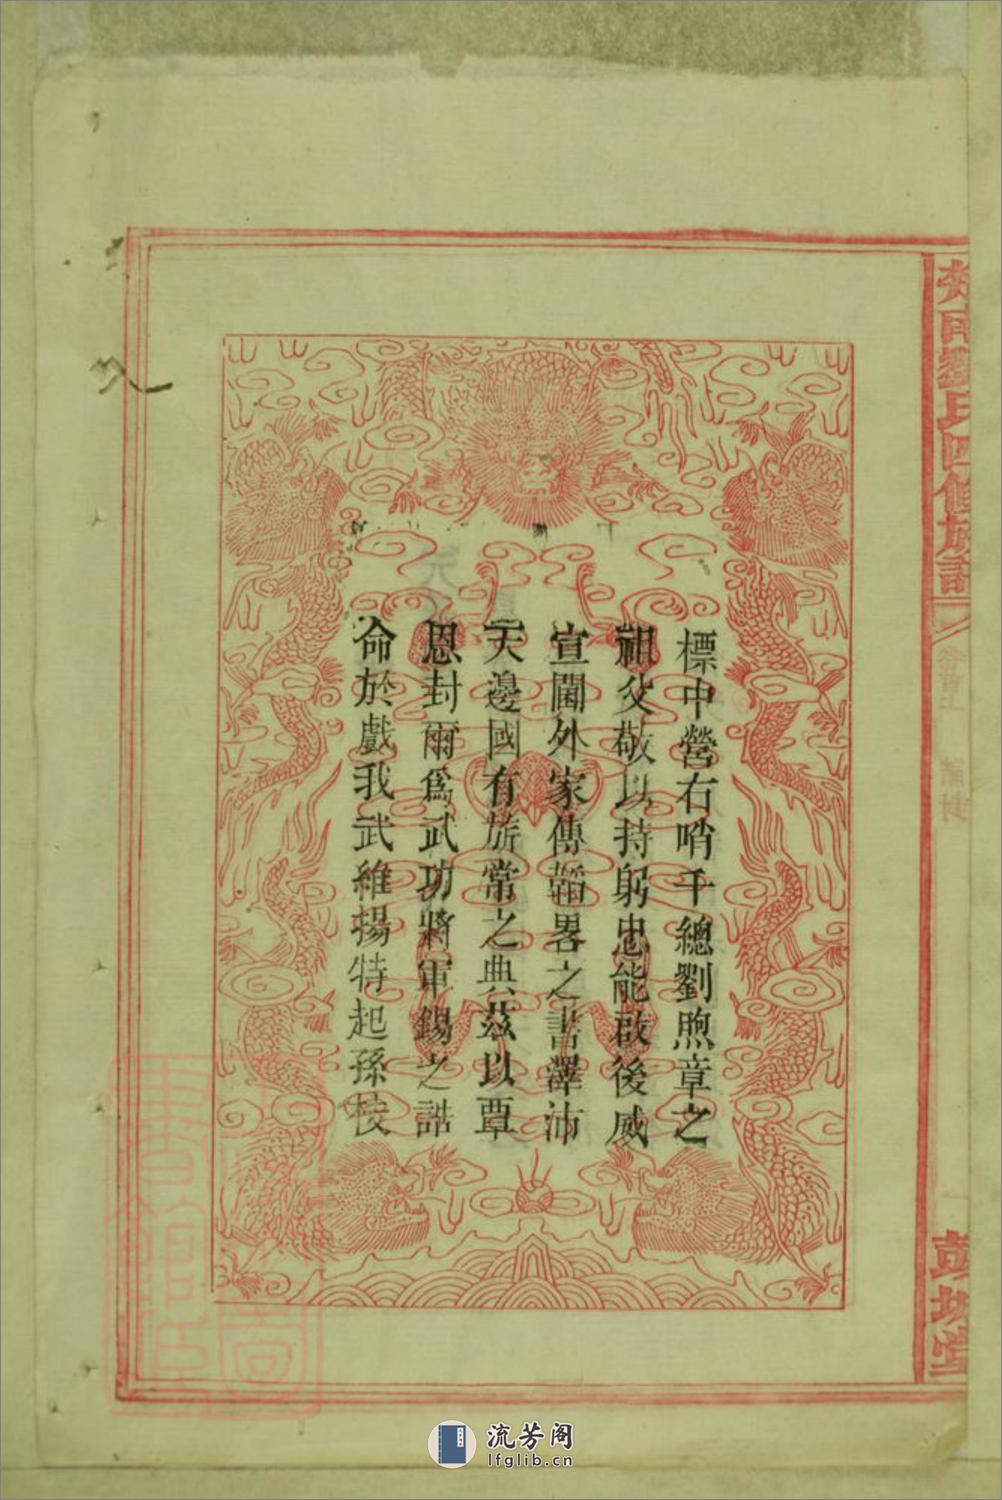 標中營右哨千總劉煦章之
祖父敬以持躬忠能啟後威
宣閫外家傳韜畧之書澤沛
天邊國有旂常之典茲以覃
恩封爾爲武功將軍錫之誥
命於戲我武維揚特起孫枝
劉氏四修族譜
誥封
一
彭城堂
流芳阁
lfglib.cn